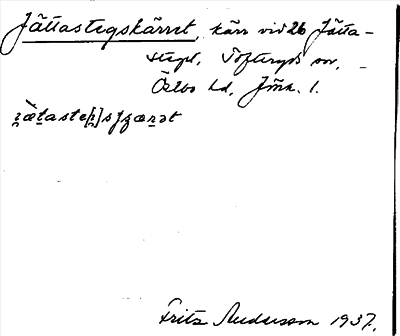 Jättastegskärret, kärr vid 26 Jätta-
steget, Tofteryds sn,
Östbo hd, Jmk. l.
Fritz Andersson 1937.